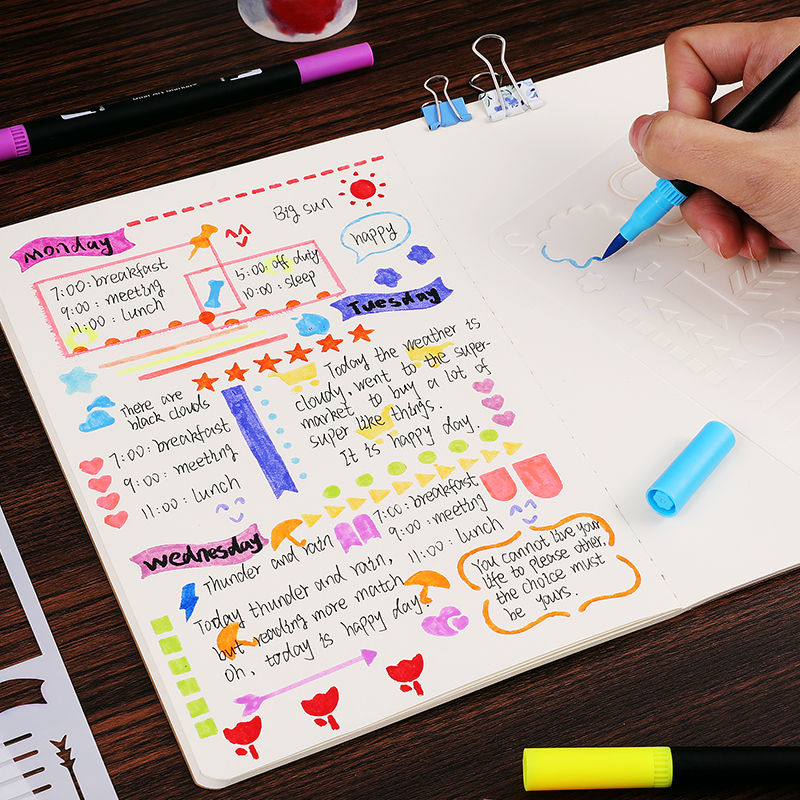 Dual Art Markers
Big sun
Monday
happy
7:00: breakfast
9:00: meeting
11:00: Lunch
5:00: off duty
10:00: sleep
Tuesday
There are
black clouds
7:00: breakfast
9:00: meeting
11:00: Lunch
Today the weather is
cloudy, went to the super-
market to buy a lot of
super like things.
It is happy day.
Wednesday
Thunder and rain
7:00: breakfast
9:00: meeting
11:00: Lunch
Today thunder and rain,
but reading more match
oh, today is happy day!
You cannot live your
life to please other.
the choice must
be yours.